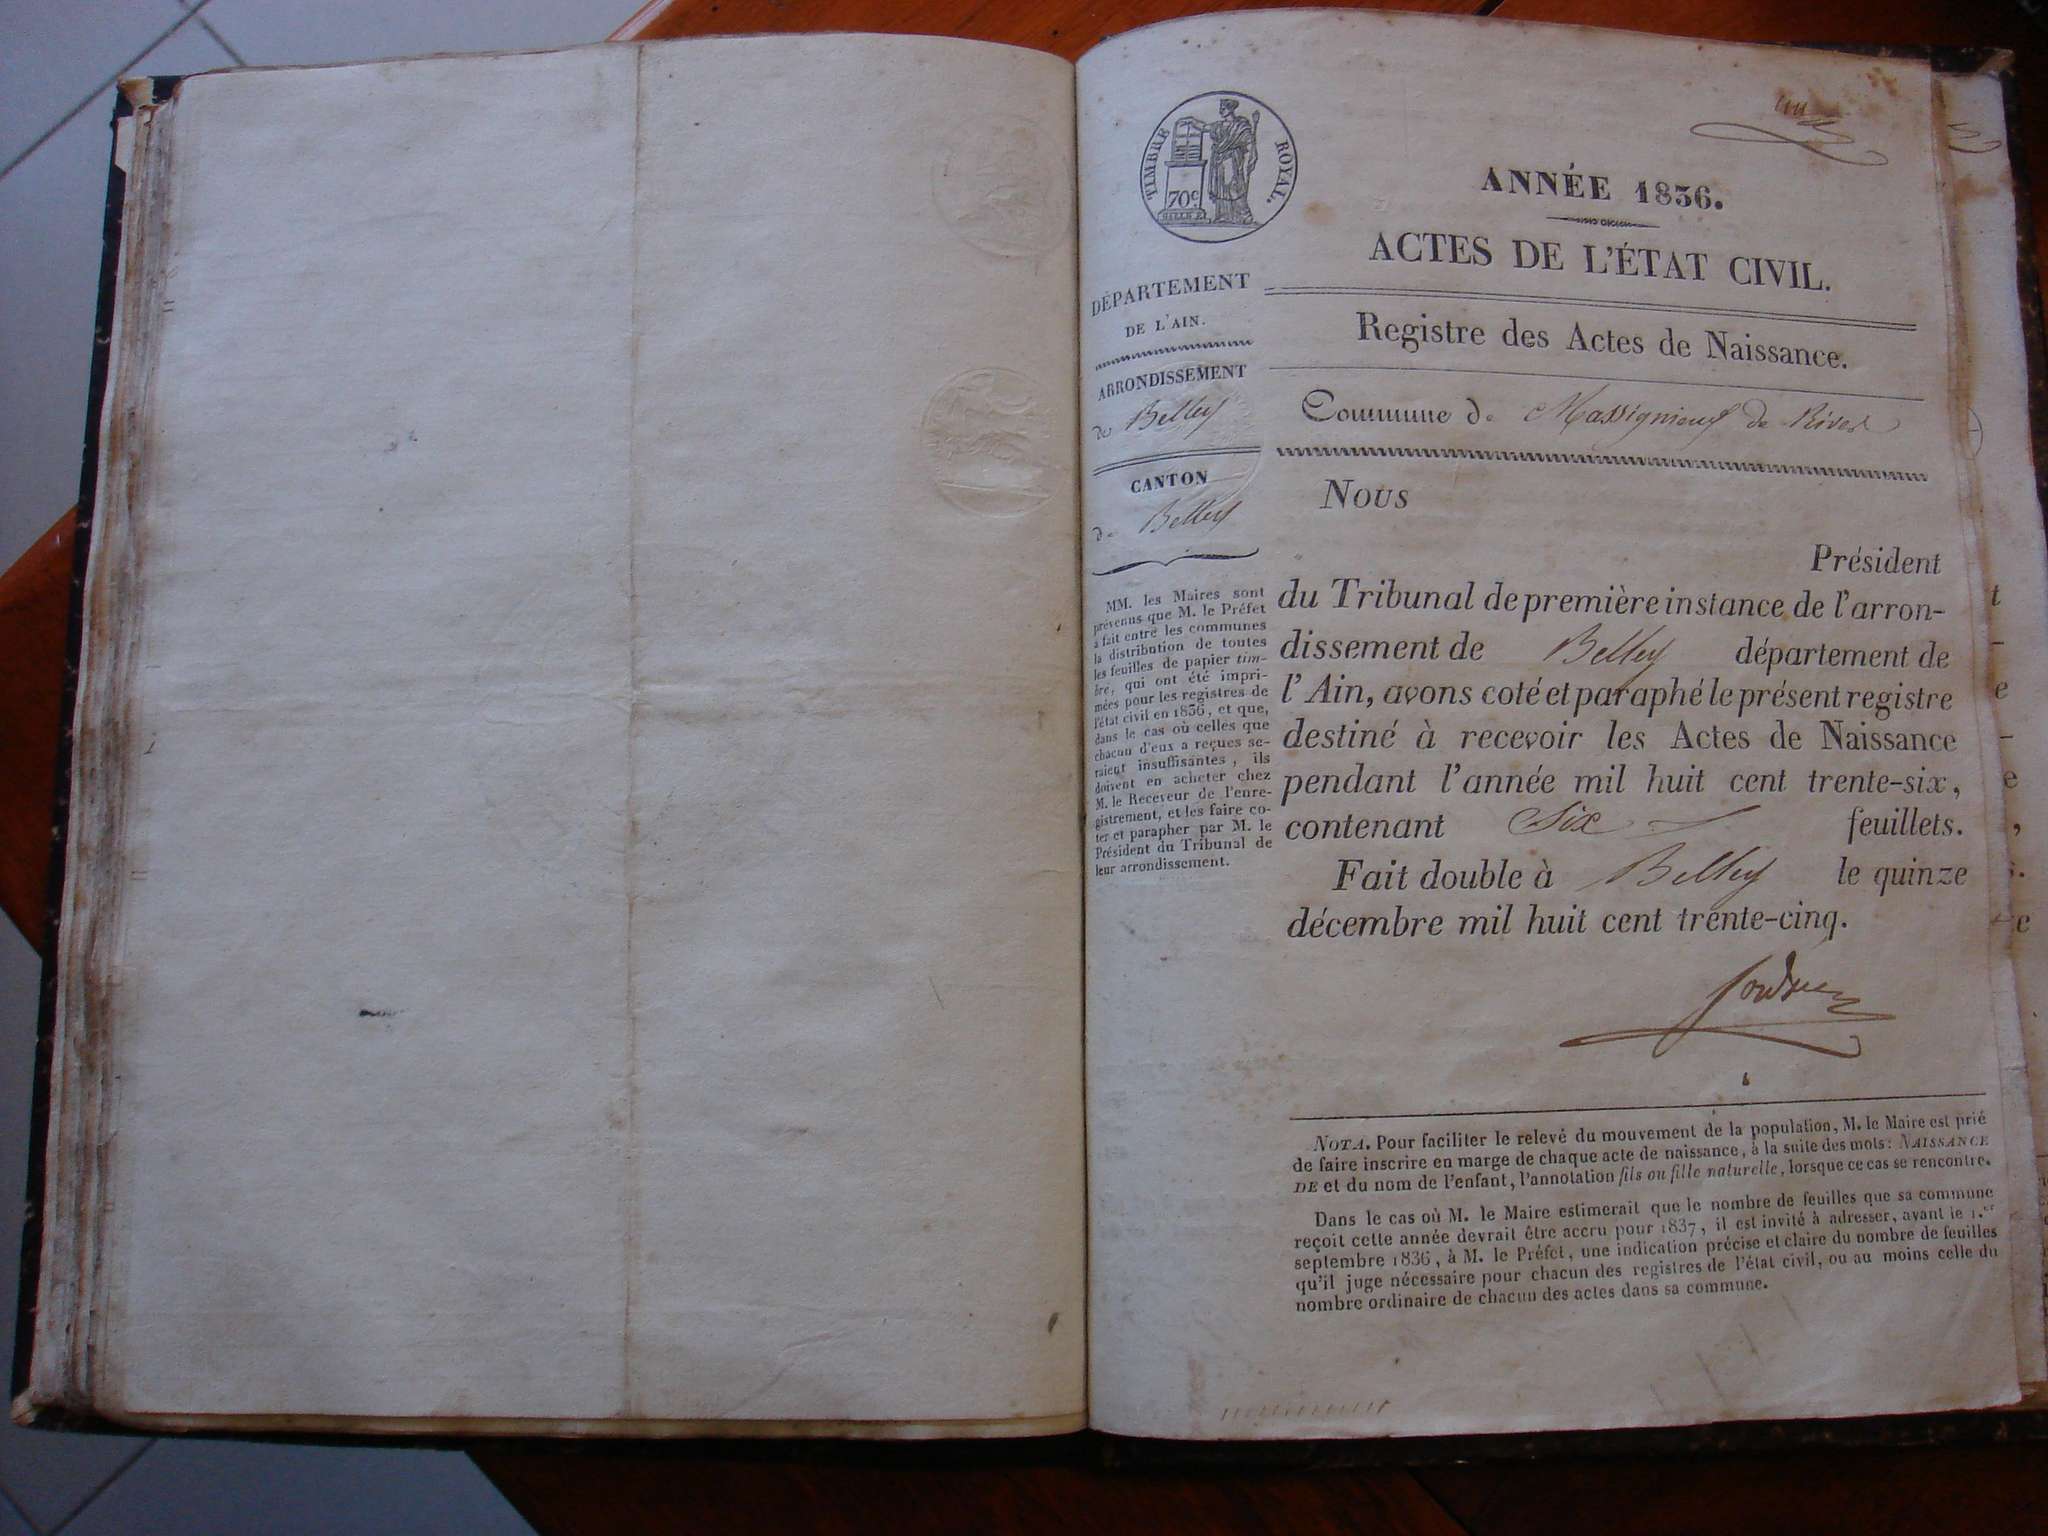 TIMBRE ROYAL.
70c
ANNÉE 1836.
ACTES DE L'ÉTAT CIVIL.
DÉPARTEMENT
DE L'AIN.
ARRONDISSEMENT
de Belley
CANTON
de Belley
MM. les Maires sont
prévenus que M. le Préfet
a fait entre les communes
la distribution de toutes
les feuilles de papier tim-
bré, qui ont été impri-
mées pour les registres de
l'état civil en 1836, et que,
dans le cas où celles que
chacun d'eux a reçues se-
raient insuffisantes, ils
doivent en acheter chez
M. le Receveur de l'enre-
gistrement, et les faire co-
ter et parapher par M. le
Président du Tribunal de
leur arrondissement.
Registre des Actes de Naissance.
Commune de Massignieux de Rives
Nous
Président
du Tribunal de première instance de l'arron-
dissement de Belley département de
l'Ain, avons coté et paraphé le présent registre
destiné à recevoir les Actes de Naissance
pendant l'année mil huit cent trente-six,
contenant Six feuillets.
Fait double à Belley le quinze
décembre mil huit cent trente-cinq.
NOTA. Pour faciliter le relevé du mouvement de la population, M. le Maire est prié
de faire inscrire en marge de chaque acte de naissance, à la suite des mots: NAISSANCE
DE et du nom de l'enfant, l'annotation fils ou fille naturelle, lorsque ce cas se rencontre.
Dans le cas où M. le Maire estimerait que le nombre de feuilles que sa commune
reçoit cette année devrait être accru pour 1837, il est invité à adresser, avant le 1.er
septembre 1836, à M. le Préfet, une indication précise et claire du nombre de feuilles
qu'il juge nécessaire pour chacun des registres de l'état civil, ou au moins celle du
nombre ordinaire de chacun des actes dans sa commune.